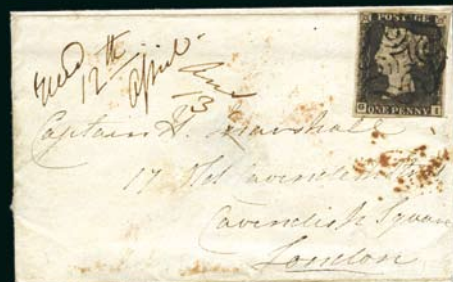 POSTAGE
ONE PENNY
Recd
12th
April
Ans
13
Captain H. Marshall
17 Old Cavendish Street
Cavendish Square
London